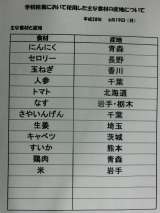 学校給食において使用した主な食材の産地について
平成28年 9月19日（月）
主な食材と産地
食材 産地
にんにく 青森
セロリー 長野
玉ねぎ 香川
人参 千葉
トマト 北海道
なす 岩手・栃木
さやいんげん 千葉
生姜 埼玉
キャベツ 茨城
すいか 熊本
鶏肉 青森
米 岩手